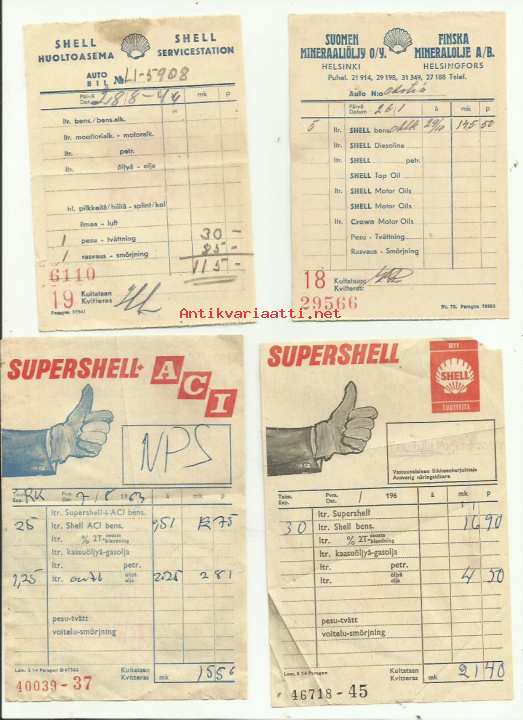 SHELL
HUOLTOASEMA
SHELL
SERVICESTATION
AUTO
BIL № LI-5908
Päivä
Datum 28.8-44
à mk p
ltr. bens./bens.alk.
ltr. moottorialk. - motoralk.
ltr. petr.
ltr. öljyä - olja
hl. pilkkeitä/hiiliä - splint/kol
ilmaa - luft
1 pesu - tvättning 30 -
1 rasvaus - smörjning 85 -
115 -
6110
19 Kuitataan
Kvitteras
SUOMEN
MINERAALIÖLJY O/Y.
HELSINKI
FINSKA
MINERALOLJE A/B.
HELSINGFORS
Puhel. 21 914, 29 198, 31 349, 27 188 Telef.
Auto N:o
Päivä
Datum 26.1
à mk p
5 ltr. SHELL bens. 29/10 145 50
ltr. SHELL Dieseline
ltr. petr.
ltr. SHELL Top Oil
ltr. SHELL Motor Oils
ltr. SHELL Motor Oils
ltr. Crown Motor Oils
Pesu - Tvättning
Rasvaus - Smörjning
18 Kuitataan
Kvitteras
29566
Antikvariaatti.net
SUPERSHELL+ ACI
NPS
RK
Pvm.
Dat. 7/8 1963
à mk p
ltr. Supershell+ACI bens.
25 ltr. Shell ACI bens. 051 12 75
ltr. % 2T-
ltr. kaasuöljyä-gasolja
ltr. petr.
1,25 ltr. öljyä
olja 2025 2 81
pesu-tvätt
voitelu-smörjning
Kuitataan
Kvitteras mk 15 56
40039-37
SUPERSHELL
NYT
SHELL
Pvm.
Dat. / 196
à mk p
ltr. Supershell
30 ltr. Shell bens. 16 90
ltr. % 2T-
ltr. kaasuöljyä-gasolja
ltr. petr.
ltr. öljyä
olja 4 50
pesu-tvätt
voitelu-smörjning
Kuitataan
Kvitteras mk 21 40
46718-45